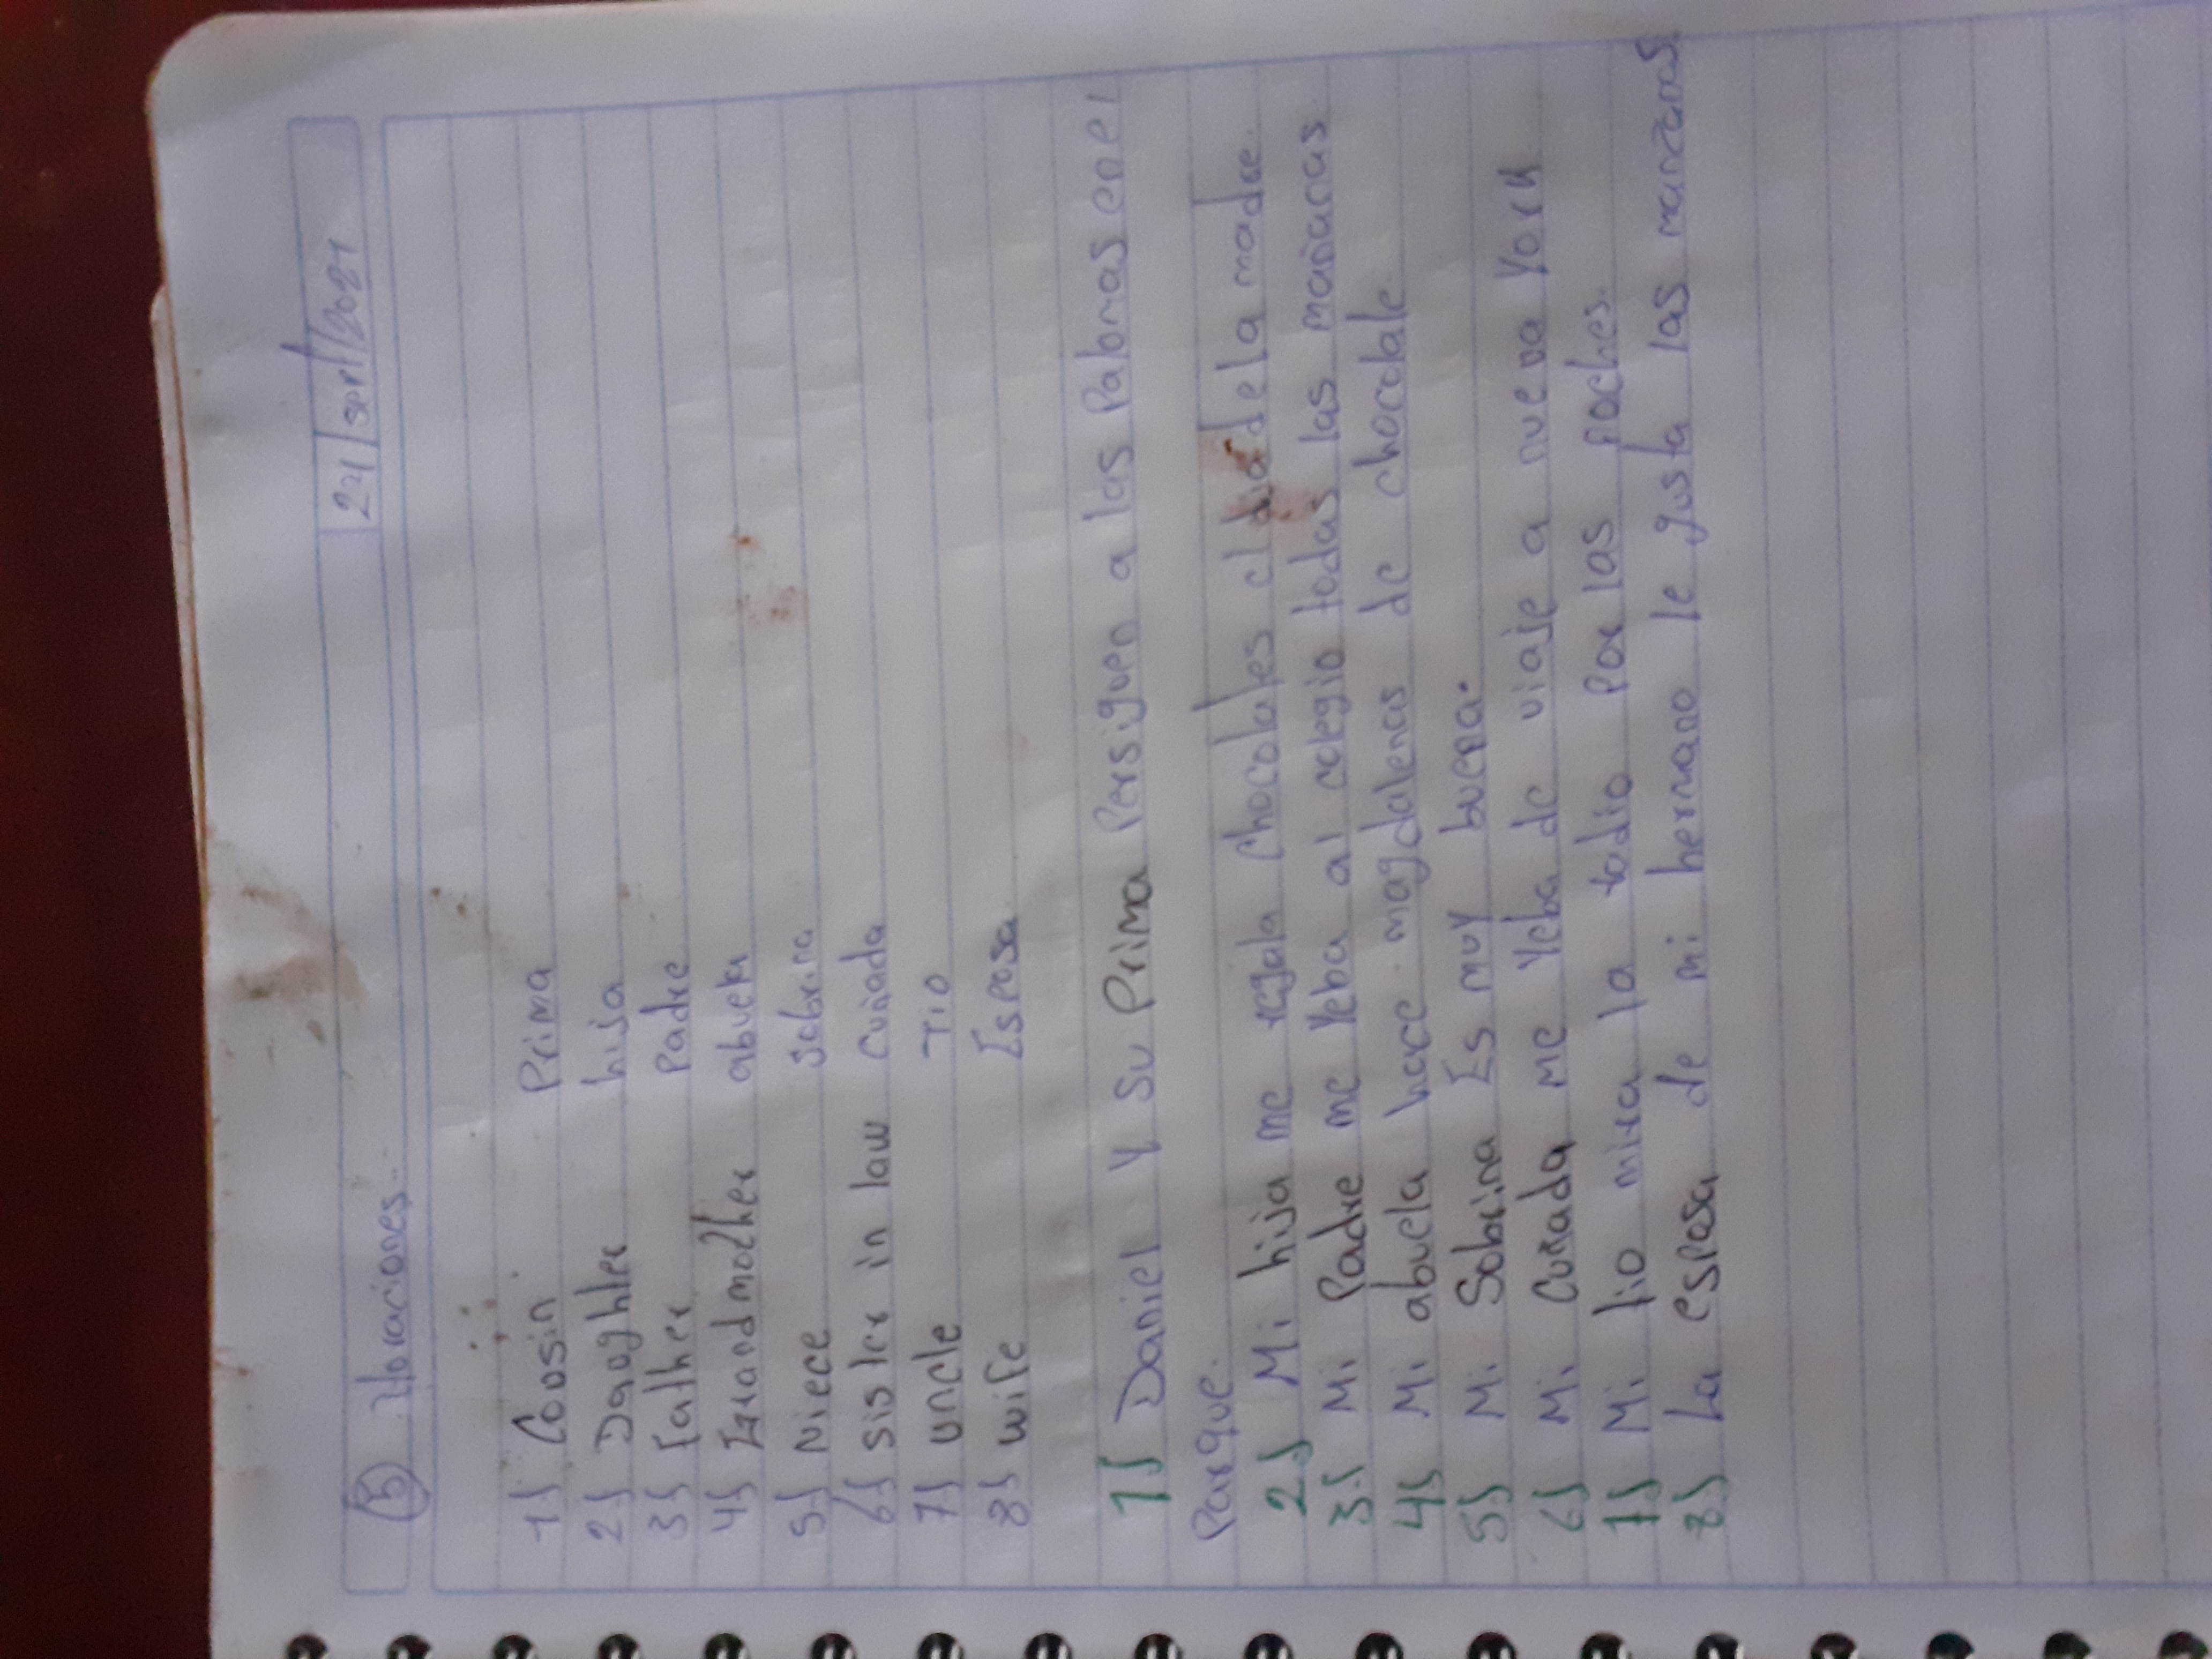 (B) Horaciones.
1) Coosin Prima
2) Daoghter hija
3) Father Padre
4) Grandmother abuela
5) Niece sobrina
6) sister in law cuñada
7) uncle Tio
8) wife Esposa
1) Daniel y su Prima Persiguen a las Palomas en el
Parque.
2) Mi hija me regala chocolates el dia de la madre.
3) Mi Padre me Yeba al colegio todas las mañanas
4) Mi abuela hace magdalenas de chocolate
5) Mi Sobrina Es muy buena.
6) Mi Cuñada me Yeba de viaje a nueva York
7) Mi tio mira la tadio por las noches.
8) La esposa de mi hermano le gusta las manzanas.